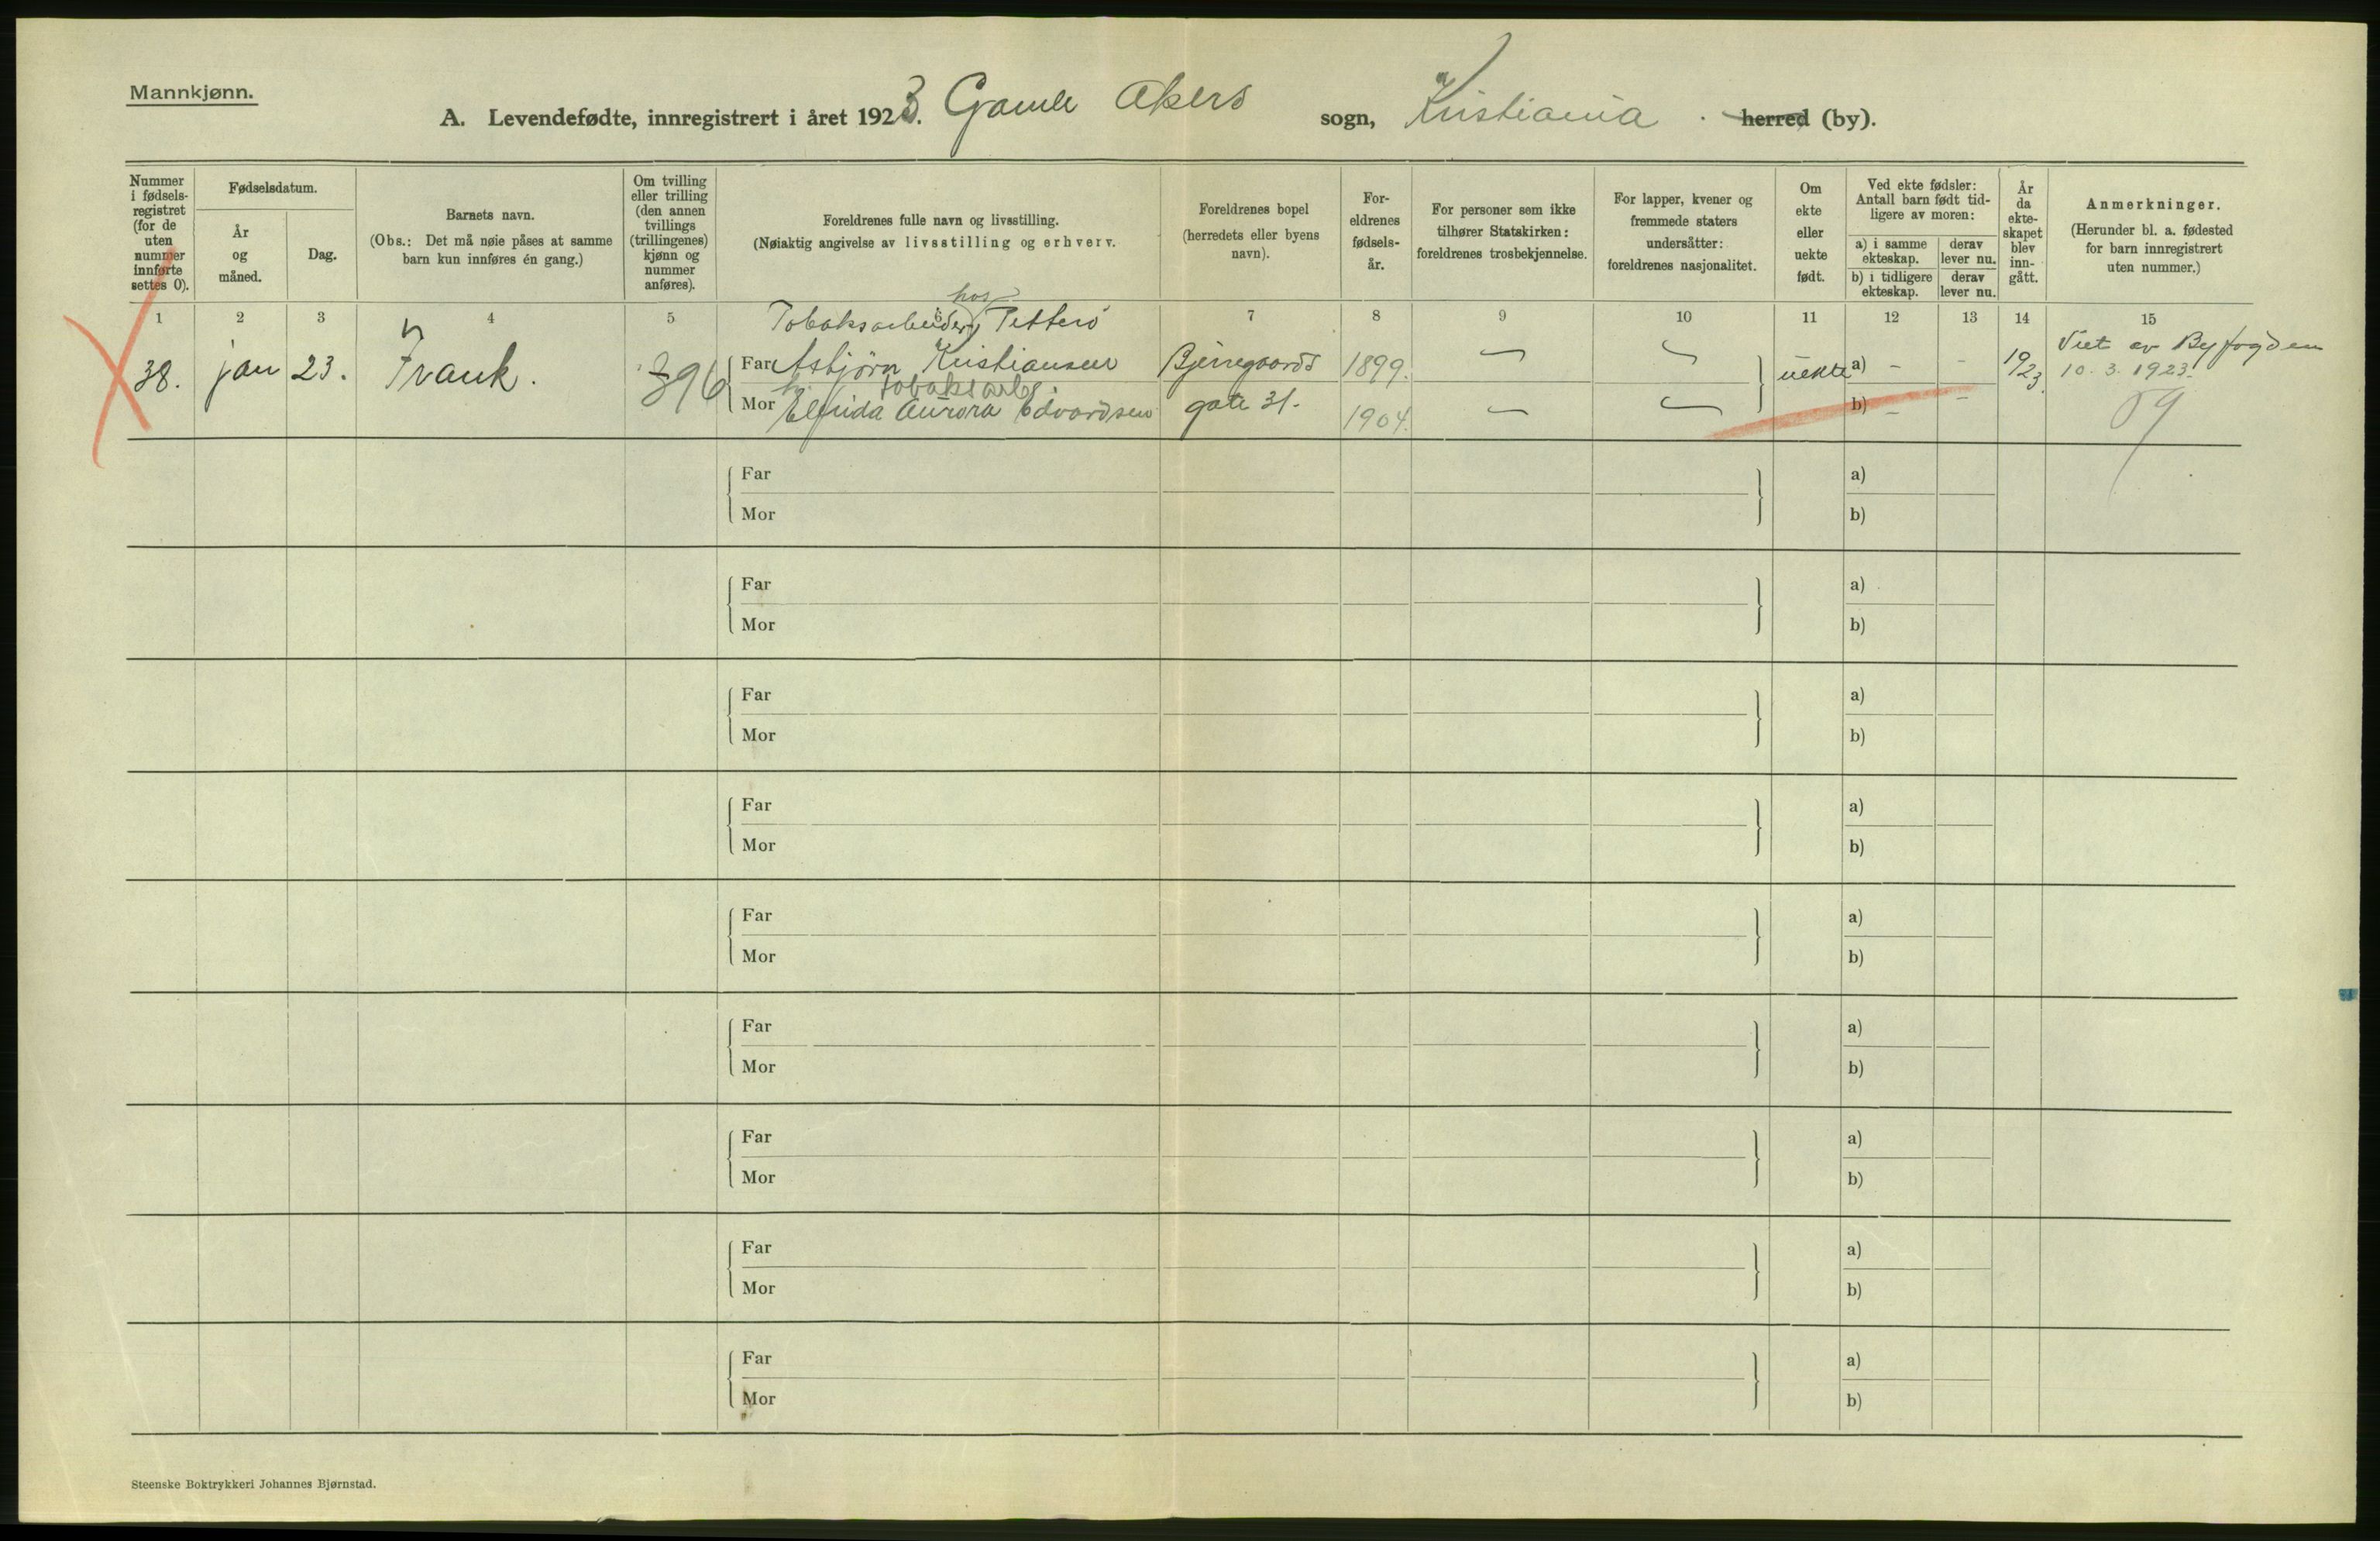 Mannkjønn.
A. Levendefødte, innregistrert i året 1923. Gamle Akers sogn, Kristiania herred (by).
Nummer i fødselsregistret (for de uten nummer innførte settes 0).
Fødselsdatum.
År og måned.
Dag.
Barnets navn.
(Obs.: Det må nøie påses at samme barn kun innføres én gang.)
Om tvilling eller trilling (den annen tvillings (trillingenes) kjønn og nummer anføres).
Foreldrenes fulle navn og livsstilling.
(Nøiaktig angivelse av livsstilling og erhverv.
Foreldrenes bopel (herredets eller byens navn).
Foreldrenes fødselsår.
For personer som ikke tilhører Statskirken: foreldrenes trosbekjennelse.
For lapper, kvener og fremmede staters undersåtter: foreldrenes nasjonalitet.
Om ekte eller uekte født.
Ved ekte fødsler: Antall barn født tidligere av moren:
a) i samme ekteskap.
derav lever nu.
b) i tidligere ekteskap.
derav lever nu.
År da ekteskapet blev inngått.
Anmerkninger.
(Herunder bl. a. fødested for barn innregistrert uten nummer.)
1 2 3 4 5 6 7 8 9 10 11 12 13 14 15
hos
Tobaksarbeider Petterö
38. jan 23. Frank. 396
Far Asbjörn Kristiansen Bjerregaards 1899. — — uekte a) - - 19/23.
Viet av Byfogden
10.3.1923.
Tobaksarb.
Mor Elfrida Aurora Edvardsen gate 31. 1904. — — b) - -
Far a)
Mor b)
Far a)
Mor b)
Far a)
Mor b)
Far a)
Mor b)
Far a)
Mor b)
Far a)
Mor b)
Far a)
Mor b)
Far a)
Mor b)
Far a)
Mor b)
Steenske Boktrykkeri Johannes Bjørnstad.